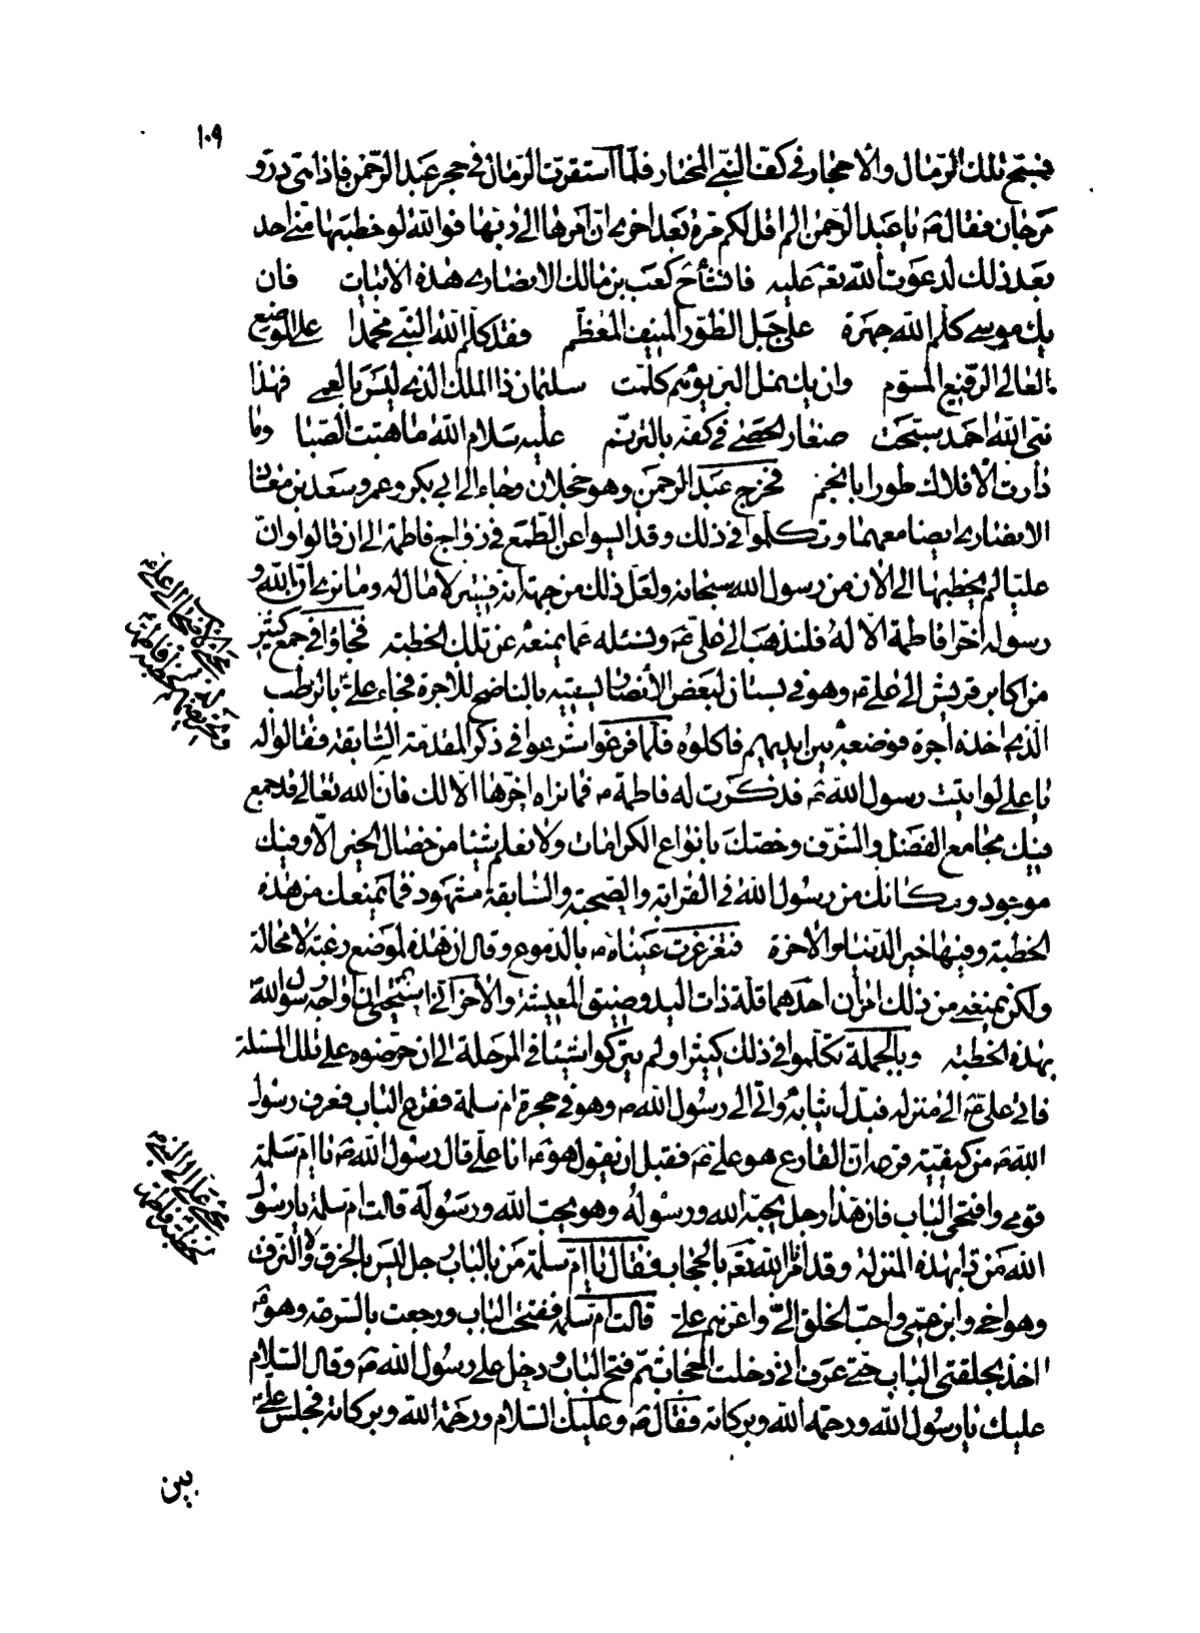 ١٠٩
فسبح تلك الرمال والاحجار في كف النبي المختار فلما استقرت الرمال في حجر عبد الرحمن فاذا هي در و
مرجان فقال ص يا عبد الرحمن الم اقل لكم مرة بعد اخرى ان امرها الى ربها فوالله لو خطبها مني احد
بعد ذلك لدعوت الله تع عليه فانشأ كعب بن مالك الانصاري هذه الابيات فان
يك موسى كلم الله جهرة على جبل الطور المنيف المعظم فقد كلم الله النبي محمدا على الموضع
العالي الرفيع المسوم وان يك نمل البر يوم كلمت سليمان ذا الملك الذي ليس بالعمي فهذا
نبي الله احمد سبحت صغار الحصى في كفه بالترنم عليه سلام الله ما هبت الصبا وما
دارت الافلاك طورا بانجم فخرج عبد الرحمن وهو خجلان وجاء الى ابي بكر وعمر وسعد بن معاذ
الانصاري ايضا معهما وتكلموا في ذلك وقد ايسوا عن الطمع في زواج فاطمة الى ان قالوا وان
عليا لم يخطبها الى الان من رسول الله سبحانه ولعل ذلك من جهة انه فقير لا مال له وما نرى ان الله و
رسوله اخر فاطمة الا له فلنذهب الى علي ع ونسئله عما يمنعه عن تلك الخطبة فجاؤا في جمع كثير
من اكابر قريش الى علي ع وهو في بستان لبعض الأنصار يسقيه بالناضح للاجرة فجاء علي ع بالرطب
الذي اخذه اجرة فوضعه بين ايديهم فاكلوه فلما فرغوا شرعوا في ذكر المقدمة السابقة فقالوا له
يا علي لو اتيت رسول الله ص فذكرت له فاطمة ع فما نراه اخرها الا لك فان الله تعالى قد جمع
فيك مجامع الفضل والشرف وخصك بانواع الكرامات ولا نعلم شيئا من خصال الخير الا وفيك
موجود ومكانك من رسول الله في القرابة والصحبة والسابقة مشهود فما يمنعك من هذه
الخطبة وفيها خير الدنيا والاخرة فتغرغرت عيناه ع بالدموع وقال ان هذه لموضع رغبة لا محالة
ولكن يمنعني من ذلك امران احدهما قلة ذات اليد وضيق المعيشة والاخر اني استحيي ان اواجه رسول الله
بهذه الخطبة وبالجملة تكلموا في ذلك كثيرا ولم يتركوا شيئا في المرحلة الى ان حرضوه على تلك المسئلة
فاتى علي ع الى منزله فبدل ثيابه واتى الى رسول الله ص وهو في حجرة ام سلمة فقرع الباب فعرف رسول
الله ص من كيفية قرعه ان القارع هو علي ع فقبل ان يقول هو ع انا علي قال رسول الله ص يا ام سلمة
قومي وافتحي الباب فان هذا رجل يحبه الله ورسوله وهو يحب الله ورسوله قالت ام سلمة يا رسول
الله من ذا بهذه المنزلة وقد امر الله تع بالحجاب فقال يا ام سلمة من بالباب رجل ليس بالخرق ولا النزق
وهو اخي وابن عمي واحب الخلق الي واعزهم علي قالت ام سلمة ففتحت الباب ورجعت بالسرعة وهو ع
اخذ بحلقتي الباب حتى عرف اني دخلت الحجاب ثم فتح الباب ودخل على رسول الله ص وقال السلام
عليك يا رسول الله ورحمة الله وبركاته فقال ص وعليك السلام ورحمة الله وبركاته فجلس علي ع
بين
مجيء
لخطبة فاطمة
مجيء علي الى النبي
لخطبة فاطمة